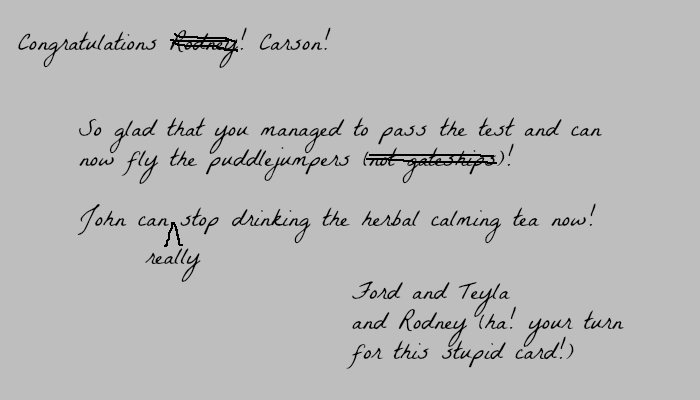 Congratulations Rodney! Carson!
So glad that you managed to pass the test and can
now fly the puddlejumpers (not gateships)!
John can stop drinking the herbal calming tea now!
really
Ford and Teyla
and Rodney (ha! your turn
for this stupid card!)